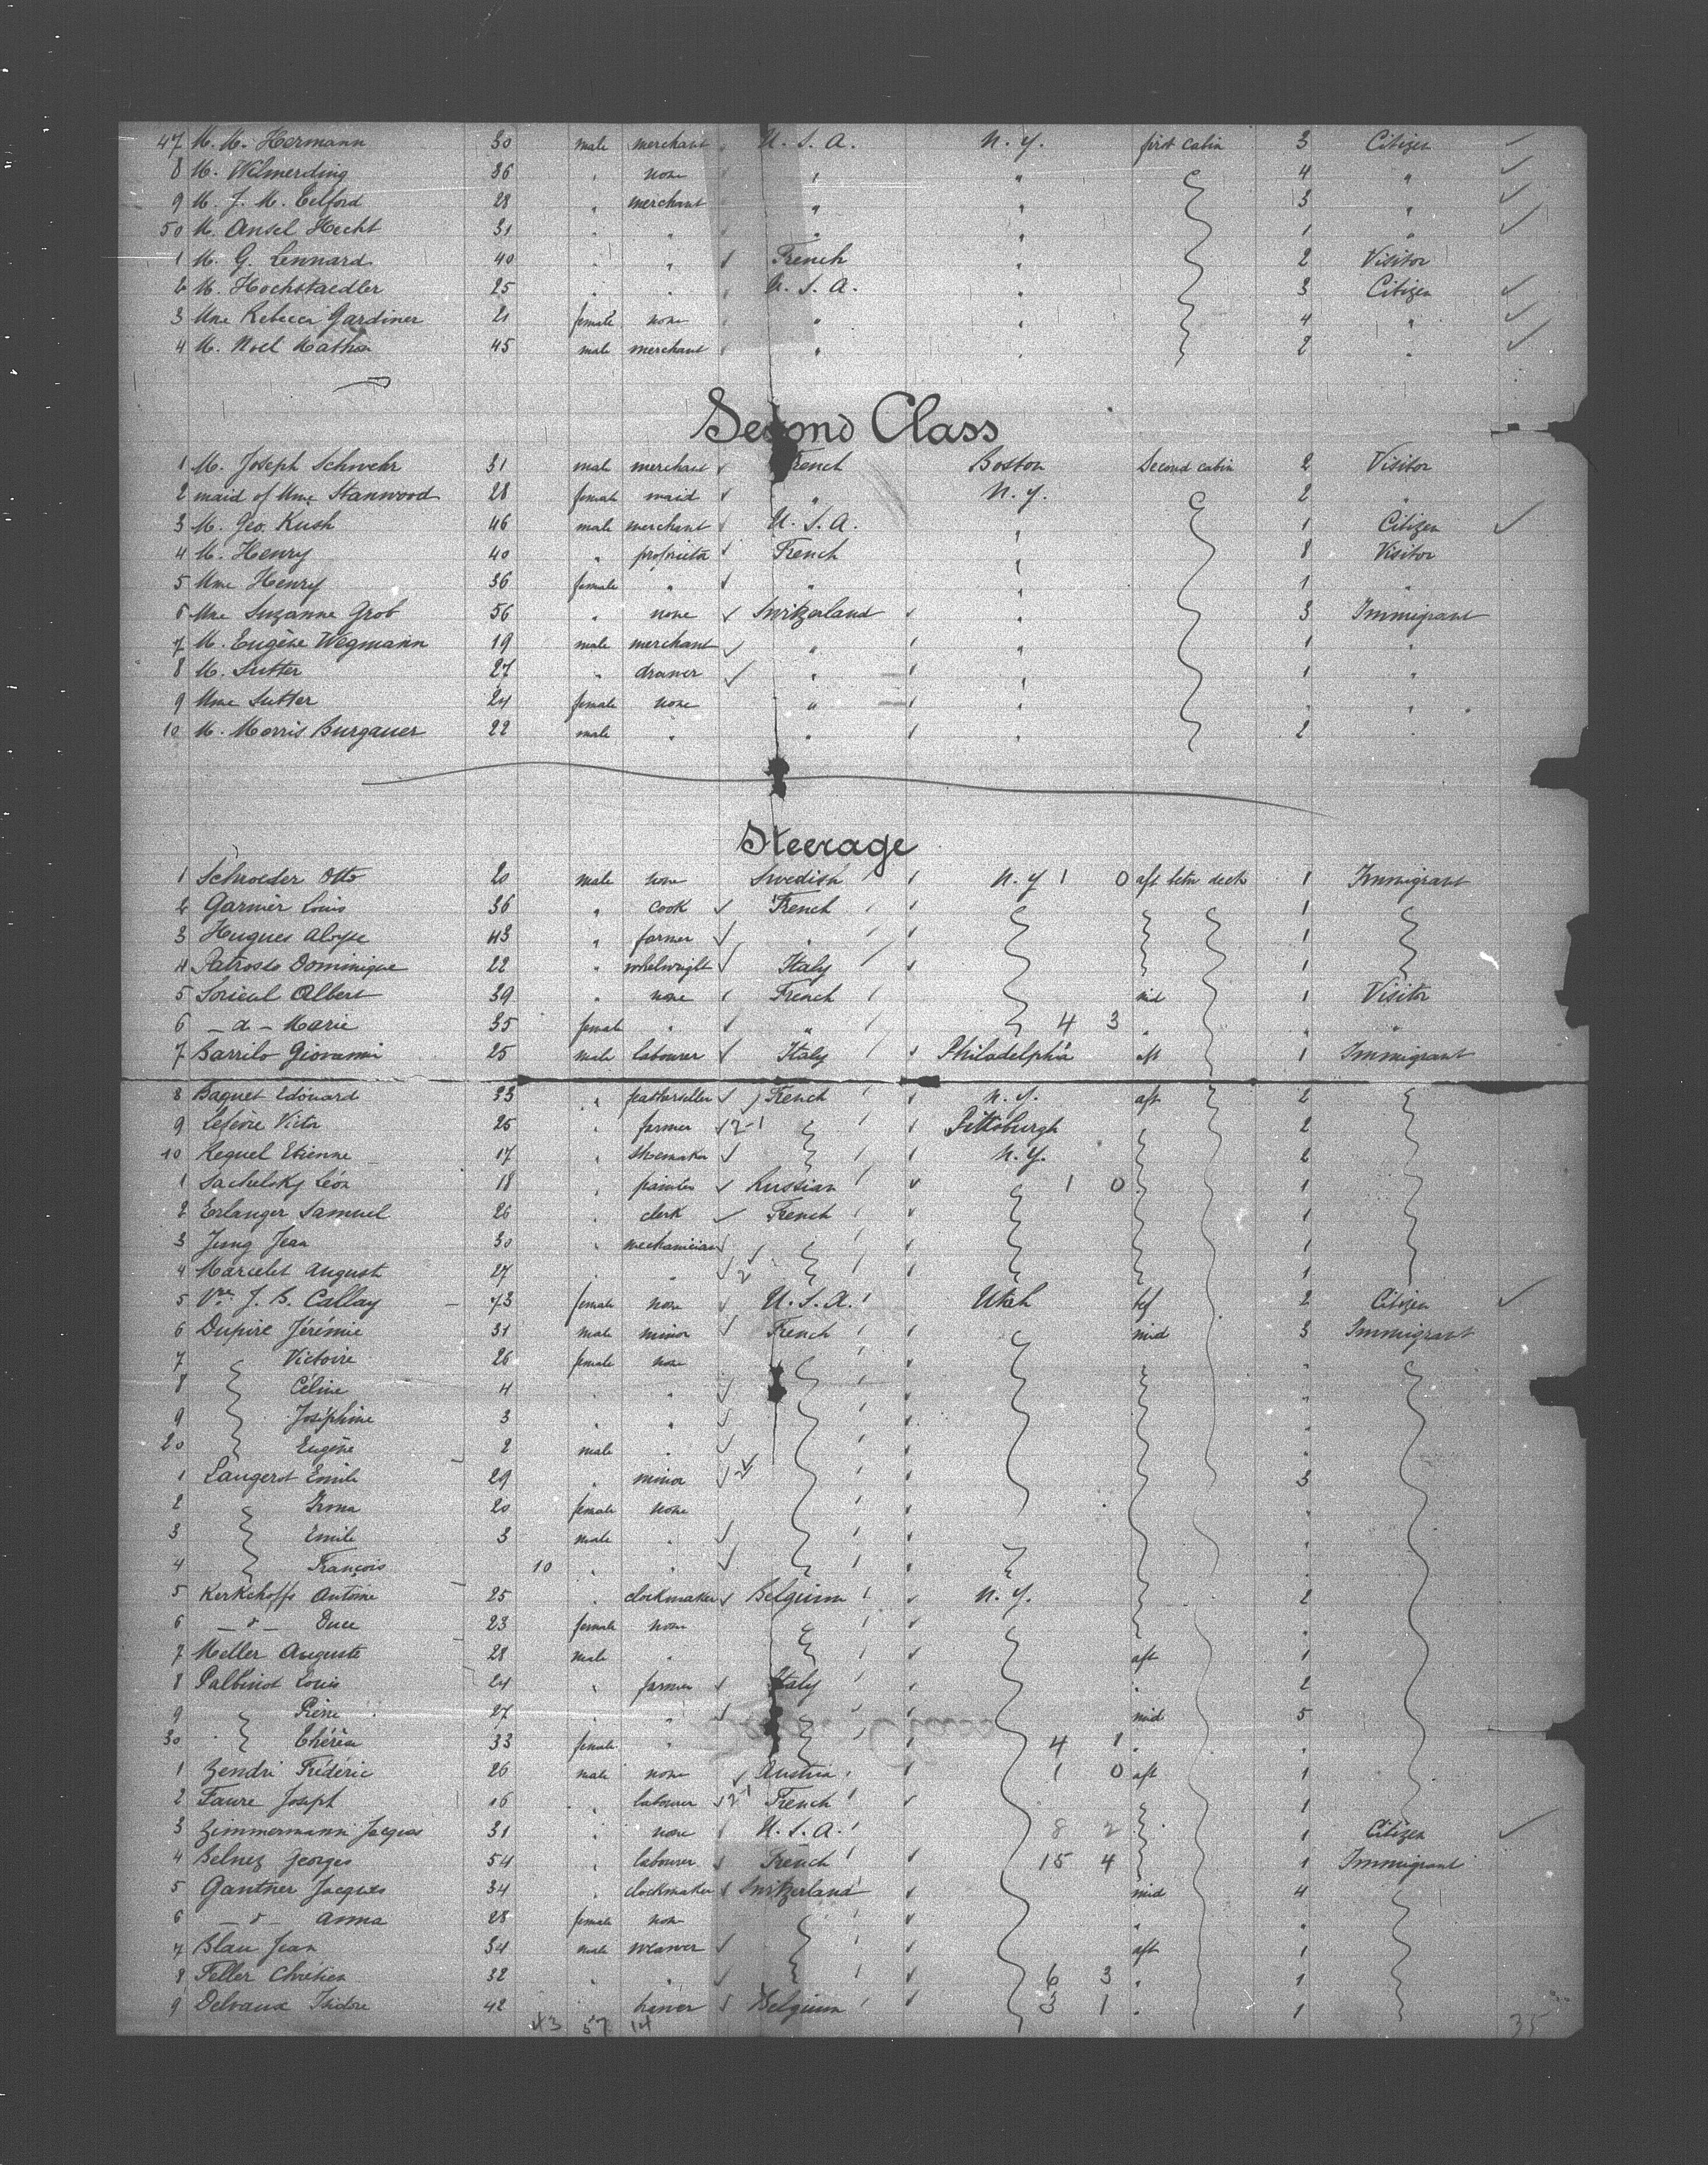 47 M. M. Hermann 30 male merchant U. S. A. N. Y. first cabin 3 Citizen
8 M. Wilmerding 36 " none " " 4 "
9 M. J. M. Telford 28 " merchant " " 3 "
50 M. Ansel Hecht 31 " " " " 1 "
1 M. G. Lennard 40 " " French " 2 Visitor
2 M. Hochstaedler 25 " " U. S. A. " 3 Citizen
3 Mme Rebecca Gardiner 21 female none " " 4 "
4 M. Noel 45 male merchant " " 2 "
Second Class
1 M. Joseph Schwehr 31 male merchant French Boston Second cabin 2 Visitor
2 maid of Mme Stanwood 28 female maid " N. Y. 2 "
3 M. Geo. Kush 46 male merchant U. S. A. " 1 Citizen
4 M. Henry 40 " French " 8 Visitor
5 Mme Henry 36 female " " " 1 "
6 Mme Suzanne Grob 56 " none Switzerland " 3 Immigrant
7 M. Eugène Wegmann 19 male merchant " " 1 "
8 M. Sutter 27 " drawer " " 1 "
9 Mme Sutter 24 female none " " " "
10 M. Morris Burgauer 22 male " " " 2 "
Steerage
1 Schroeder Otto 20 male none Swedish N. Y 1 0 aft betw deck 1 Immigrant
2 Garnier Louis 36 " cook French 1
3 Hugues Aloyse 43 " farmer " 1
4 Dominique 22 " whelwright Italy 1
5 Sorieul Albert 39 " none French mid 1 Visitor
6 — d — Marie 35 female " " 4 3 " " "
7 Barrilo Giovanni 25 male labourer Italy Philadelphia aft 1 Immigrant
8 Baquet Edouard 33 " French N. Y. aft 2
9 Lefèvre Victor 25 " farmer 2-1 Pittsburgh 2
10 Requel Etienne 17 " shoemaker N. Y. 2
1 Léon 18 " painter Russian 1 0 1
2 Erlanger Samuel 26 " clerk French 1
3 Jung Jean 30 " mechanician 1
4 Marcelet August 27 " " 1
5 Vve J. B. Callay 73 female none U. S. A. Utah 2 Citizen
6 Dupire Jérémie 31 male minor French mid 3 Immigrant
7 Victoire 26 female none "
8 Céline 4 " " "
9 Joséphine 3 " " "
20 Eugène 2 male " "
1 Laugerot Emile 29 " minor 3
2 Irma 20 female none "
3 Emile 3 male " "
4 François 10 " " "
5 Kerkchoffs Antoine 25 " clockmaker Belgium N. Y. 2
6 — d — 23 female none "
7 Meller Auguste 28 male " aft 1
8 Palbinot Louis 24 " farmer Italy " 2
9 Pierre 27 " " mid 5
30 33 female " 4 1 " "
1 Zendri Frédéric 26 male none Austria 1 0 aft 1
2 Faure Joseph 16 " labourer 2-1 French 1
3 Zimmermann Jacques 31 " none U. S. A. 8 2 1 Citizen
4 Belnez Georges 54 " labourer French 15 4 1 Immigrant
5 Gantner Jacques 34 " clockmaker Switzerland mid 4
6 — d — Anna 28 female none " "
7 Blau Jean 34 male weaver aft 1
8 Feller Chrétien 32 " " 6 3 " 1
9 Delvaux Isidore 42 Belgium 3 1 " 1
43 57 14 35